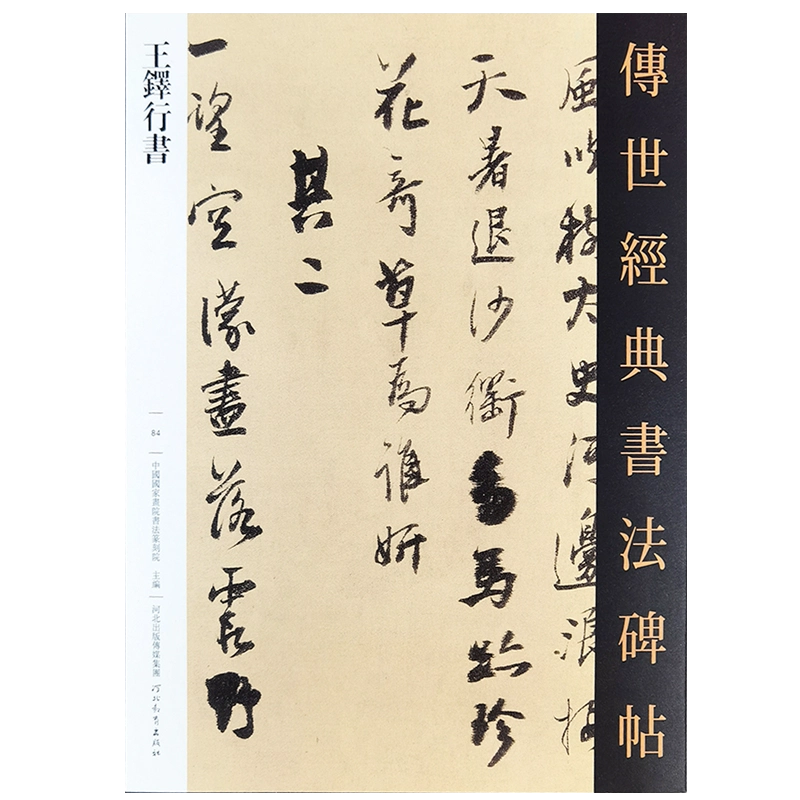 傳世經典書法碑帖
風吹大史河邊浪
天暑退沙衢馬跡珍
花奇草為誰妍
其二
一望空濛盡落霞野
王鐸行書
84
中國國家畫院書法篆刻院 主編
河北出版傳媒集團
河北教育出版社